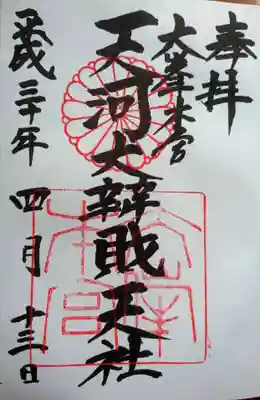 奉拝
大峯本宮
天河大辨財天社
平成三十年 四月 十三日